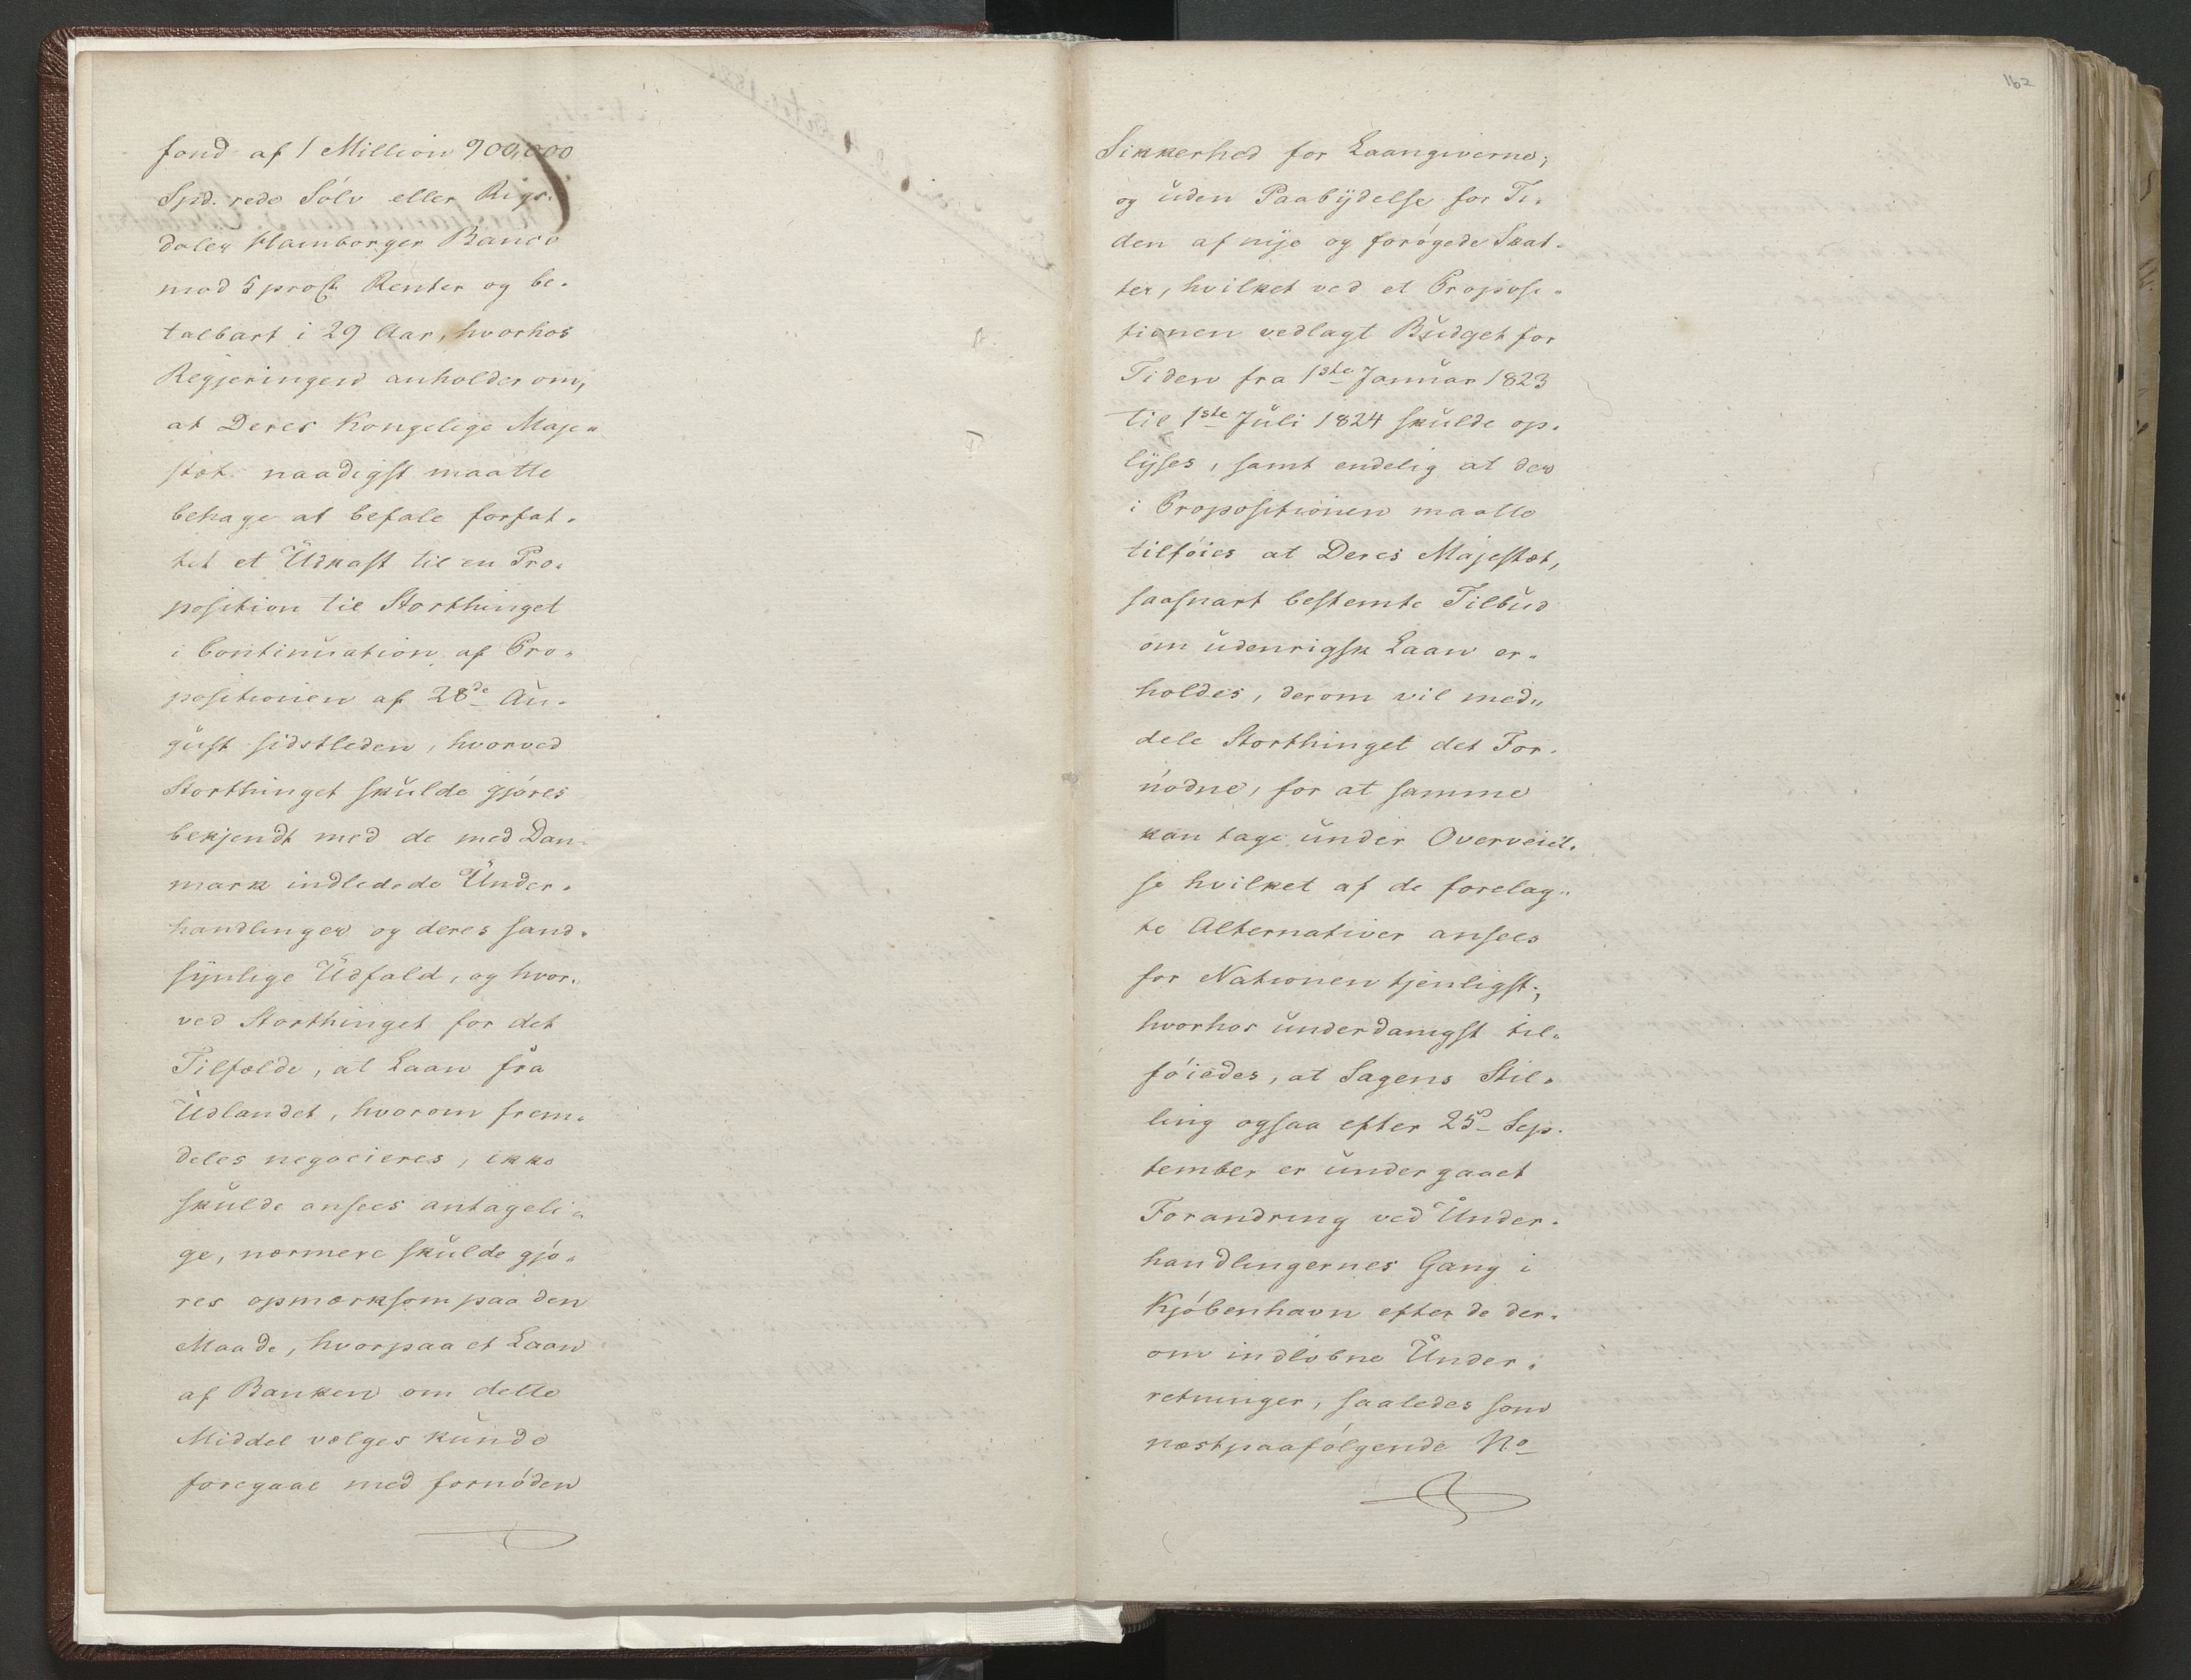 fond af 1 Million 900,000
Spd. rede Sólv eller Rigs-
daler Hamborger Banco
mod 5 proCt. Renter og be-
talbart i 29 Aar, hvorhos
Regjeringen anholder om,
at Deres Kongelige Maje-
stæt naadigst maatte
behage at befale forfat-
tet et Udkast til en Pro-
position til Storthinget
i Continuation af Pro-
positionen af 28de Au-
gust sidstleden, hvorved
Storthinget skulde gjóres
bekjendt med de med Dan-
mark indledede Under-
handlinger og deres sand-
synlige Udfald, og hvor-
ved Storthinget for det
Tilfælde, at Laan fra
Udlandet, hvorom frem-
deles negocieres, ikke
skulde ansees antageli-
ge, nærmere skulde gjó-
res opmærksom paa den
Maade, hvorpaa et Laan
af Banken om dette
Middel vælges kunde
foregaae med fornóden
162
Sikkerhed for Laangiverne,
og uden Paabydelse for Ti-
den af nye og forógede Skat-
ter, hvilket ved et Proposi-
tionen vedlagt Budget for
Tiden fra 1ste Januar 1823
til 1ste Juli 1824 skulde op-
lyses, samt endelig at der
i Propositionen maatte
tilfóies at Deres Majestæt,
saasnart bestemte Tilbud
om udenrigsk Laan er-
holdes, derom vil med-
dele Storthinget det For-
nódne, for at samme
kan tage under Overveiel-
se hvilket af de forelag-
te Alternativer ansees
for Nationen tjenligst;
hvorhos underdanigst til-
fóiedes, at Sagens Stil-
ling ogsaa efter 25de Sep-
tember er undergaaet
Forandring ved Under-
handlingernes Gang i
Kjóbenhavn efter de der-
om indlóbne Under-
retninger, saaledes som
næstpaafólgende No